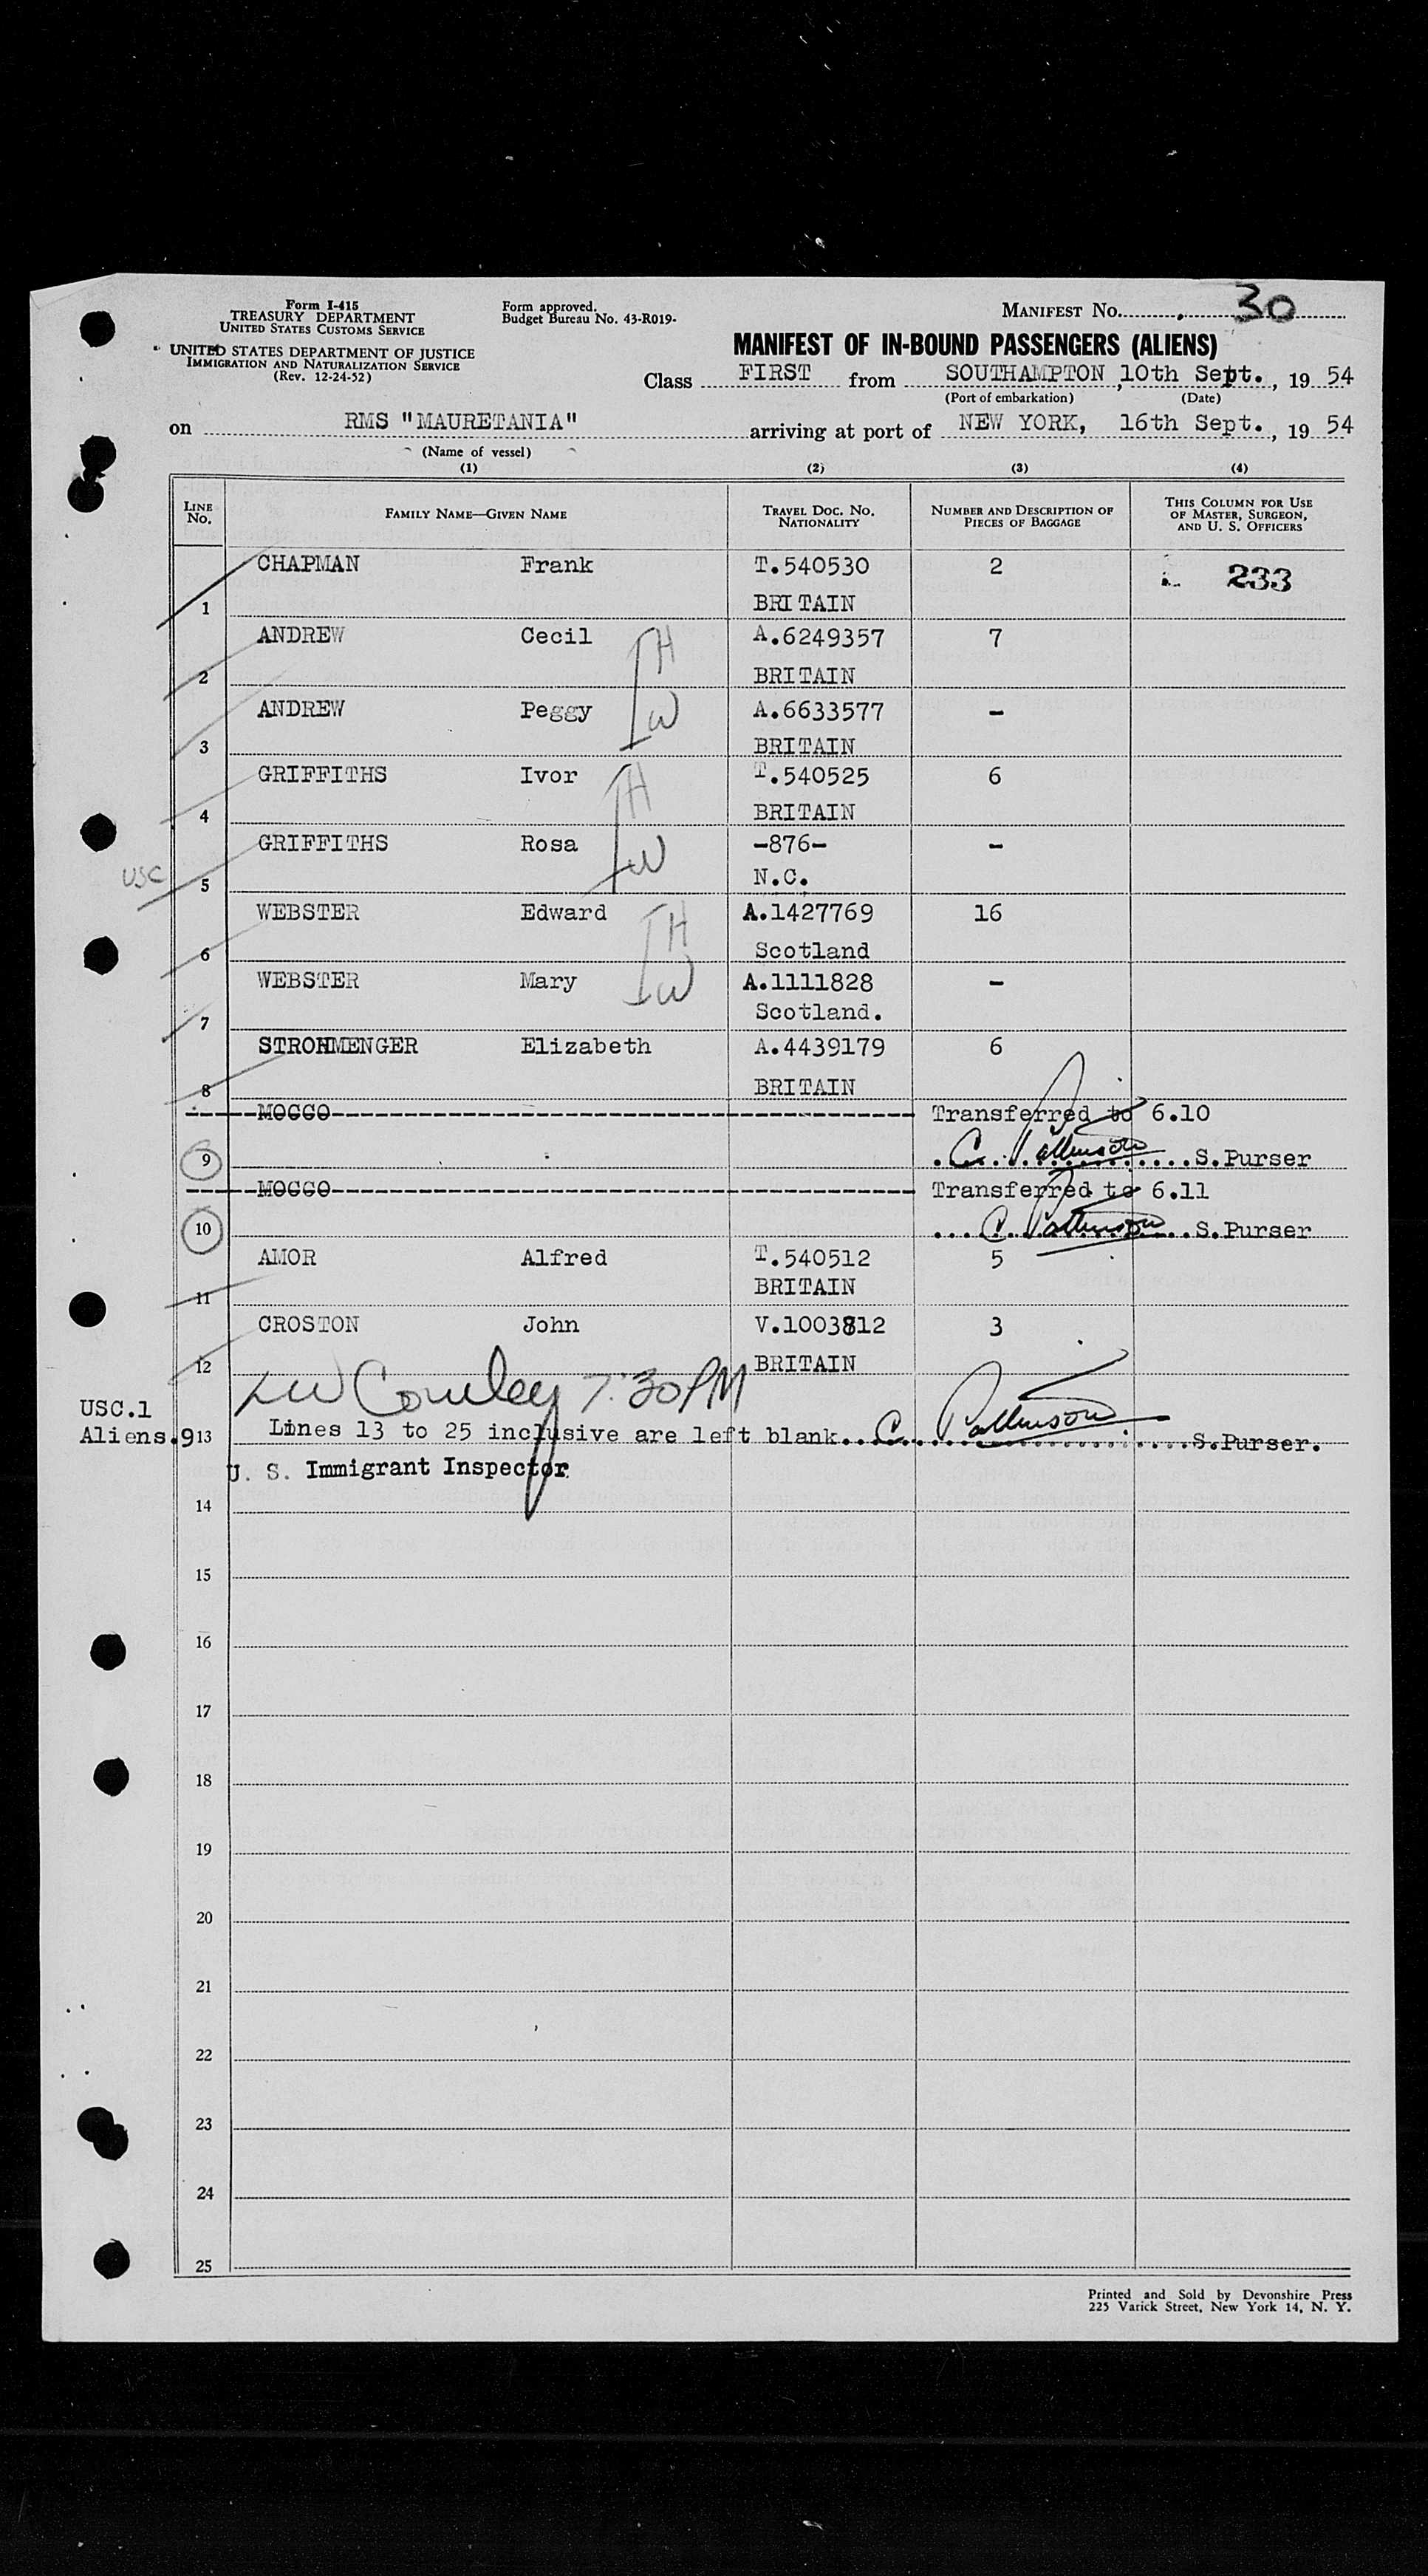 Form I-415
TREASURY DEPARTMENT
UNITED STATES CUSTOMS SERVICE
UNITED STATES DEPARTMENT OF JUSTICE
IMMIGRATION AND NATURALIZATION SERVICE
(Rev. 12-24-52)
Form approved.
Budget Bureau No. 43-R019-
MANIFEST NO. 30
MANIFEST OF IN-BOUND PASSENGERS (ALIENS)
Class FIRST from SOUTHAMPTON, 10th Sept., 19 54
(Port of embarkation) (Date)
on RMS "MAURETANIA" arriving at port of NEW YORK, 16th Sept., 19 54
(Name of vessel)
(1) (2) (3) (4)
LINE NO. FAMILY NAME—GIVEN NAME TRAVEL DOC. NO. NATIONALITY NUMBER AND DESCRIPTION OF PIECES OF BAGGAGE THIS COLUMN FOR USE OF MASTER, SURGEON, AND U. S. OFFICERS
CHAPMAN Frank T.540530 2 233
1 BRITAIN
ANDREW Cecil H A.6249357 7
2 BRITAIN
ANDREW Peggy W A.6633577 -
3 BRITAIN
GRIFFITHS Ivor H T.540525 6
4 BRITAIN
GRIFFITHS Rosa W -876- -
USC 5 N.C.
WEBSTER Edward H A.1427769 16
6 Scotland
WEBSTER Mary W A.1111828 -
7 Scotland.
STROHMENGER Elizabeth A.4439179 6
8 BRITAIN
MOCCO Transferred to 6.10
9 C. Pattinson S.Purser
MOCCO Transferred to 6.11
10 C. Pattinson S.Purser
AMOR Alfred T.540512 5
11 BRITAIN
CROSTON John V.1003812 3
12 BRITAIN
7:30 PM
USC.1
Aliens.9 13 Lines 13 to 25 inclusive are left blank. C. Pattinson S.Purser.
U. S. Immigrant Inspector
14
15
16
17
18
19
20
21
22
23
24
25
Printed and Sold by Devonshire Press
225 Varick Street, New York 14, N. Y.